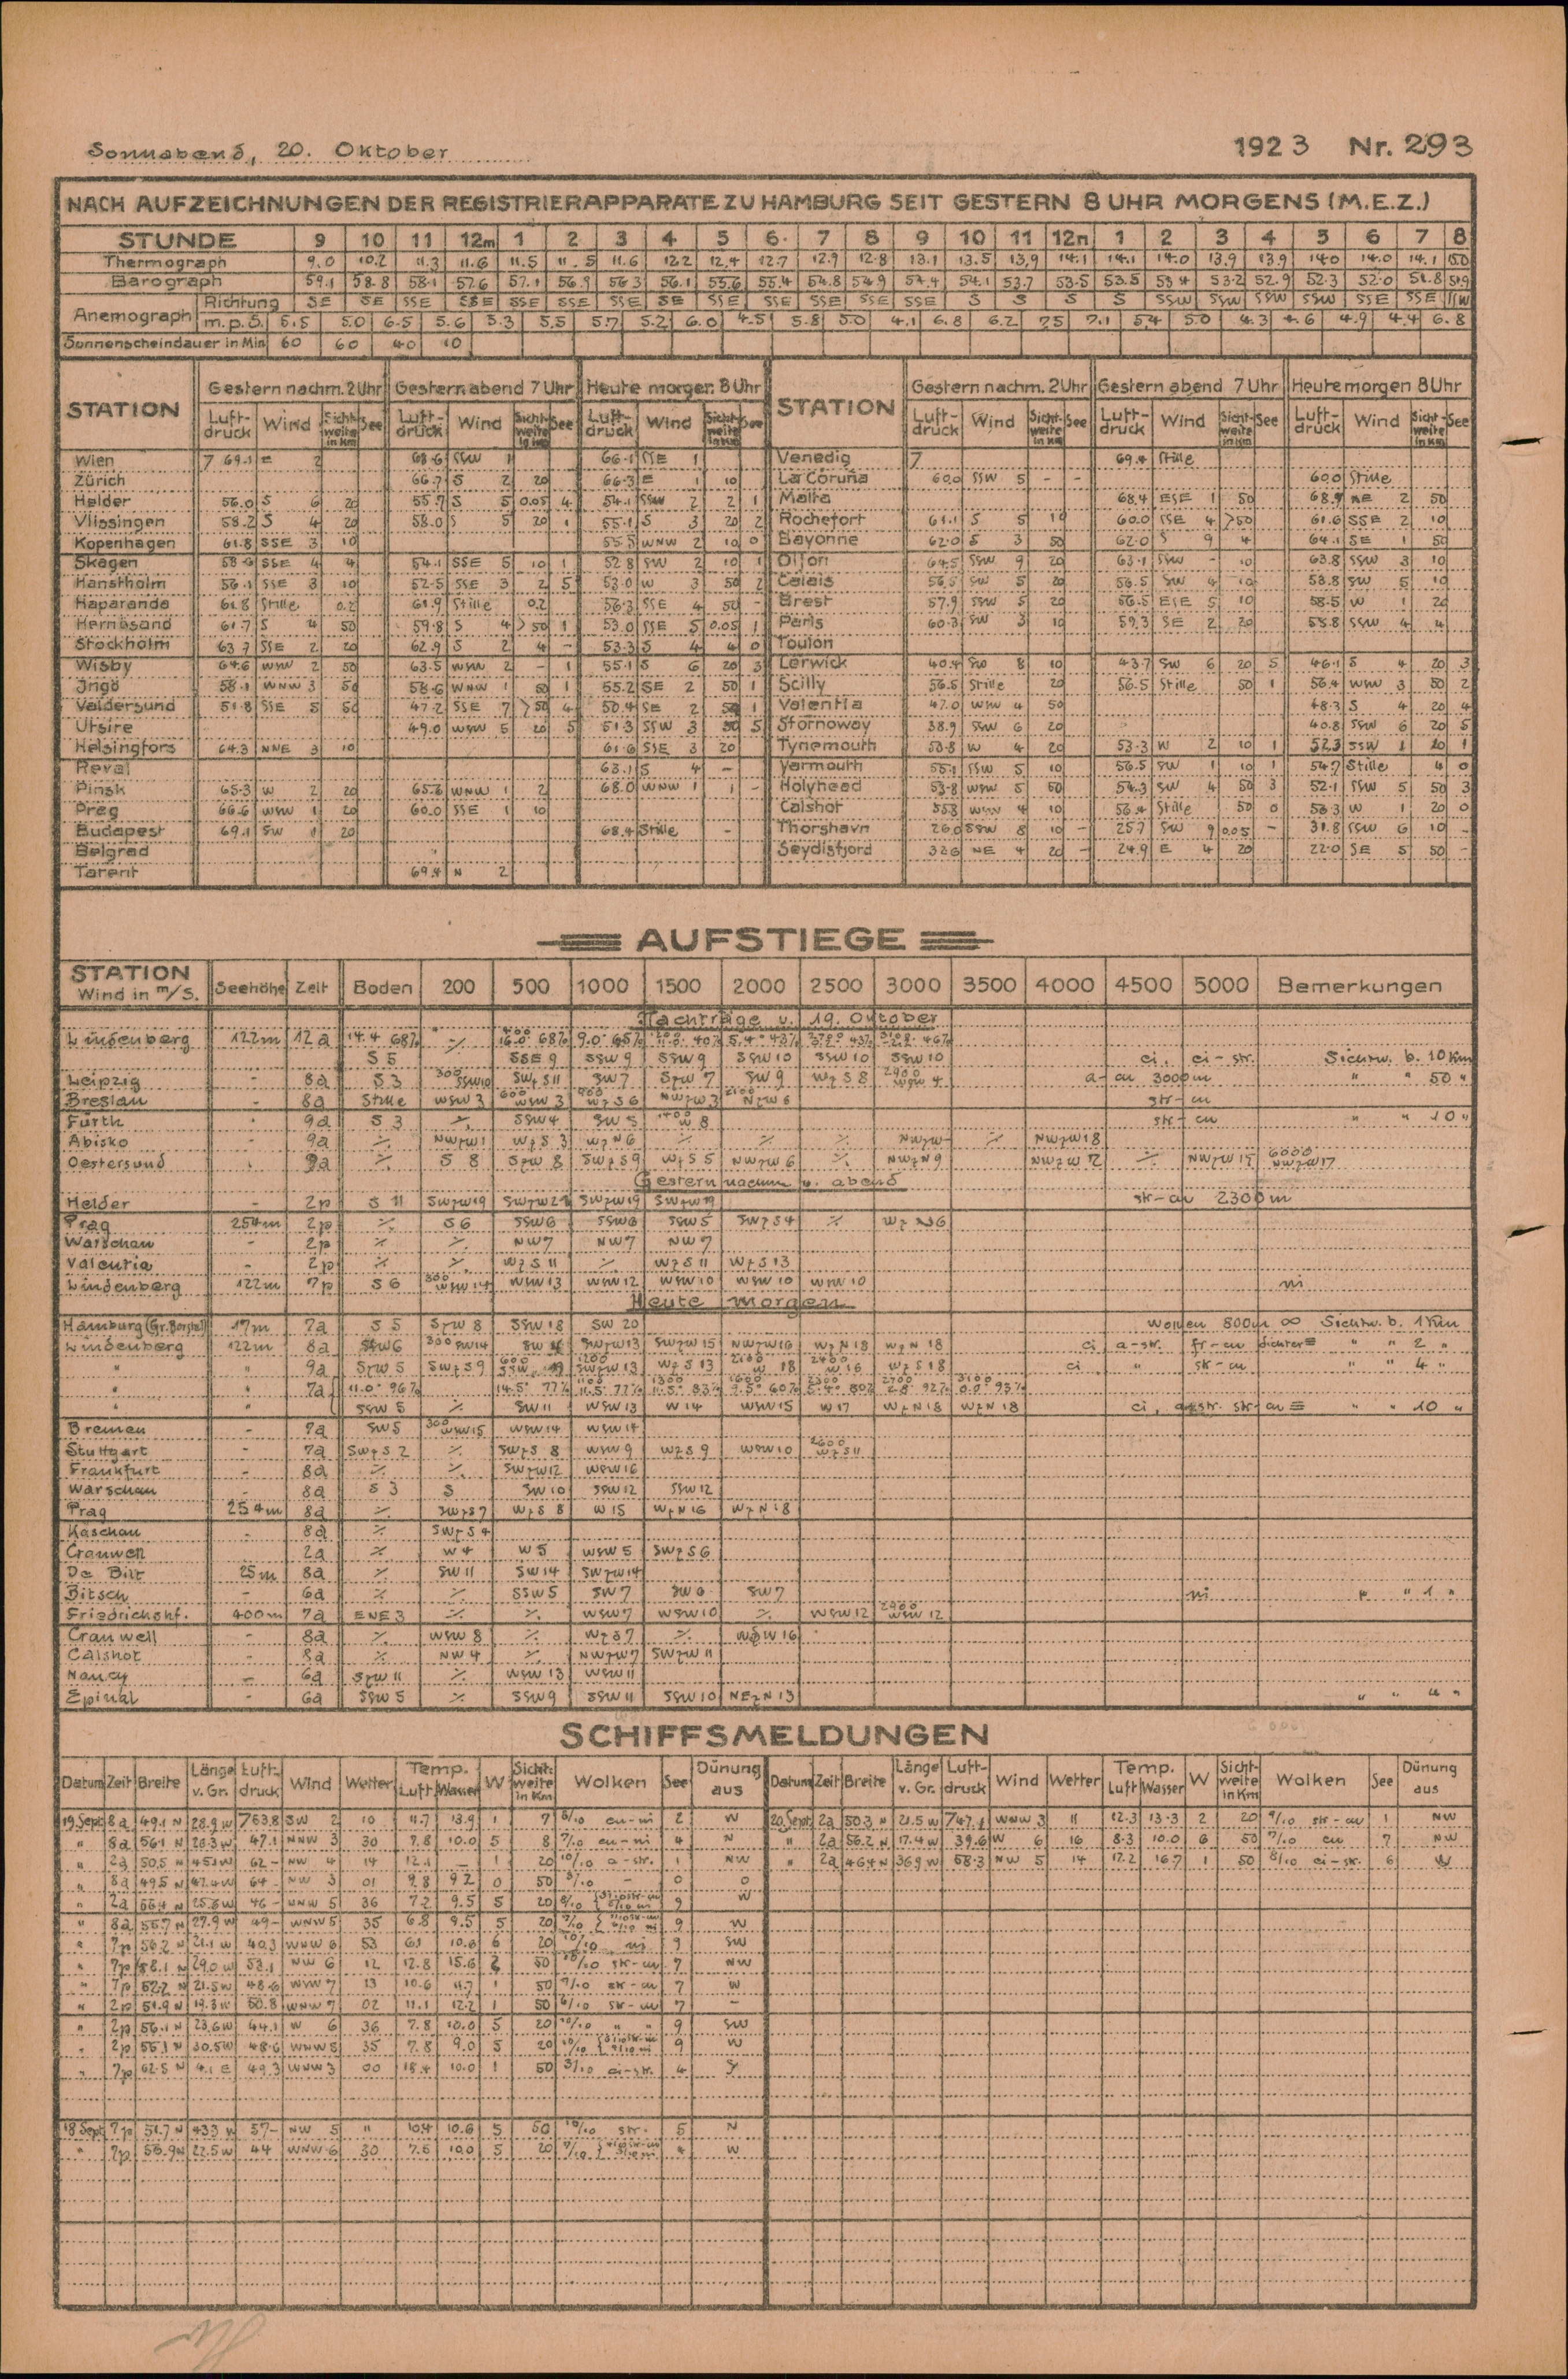 Sonnabend, 20. Oktober 1923 Nr. 293
NACH AUFZEICHNUNGEN DER REGISTRIERAPPARATE ZU HAMBURG SEIT GESTERN 8 UHR MORGENS (M.E.Z.)
STUNDE 9 10 11 12m 1 2 3 4 5 6 7 8 9 10 11 12n 1 2 3 4 5 6 7 8
Thermograph 9.0 10.2 11.3 11.6 11.5 11.5 11.6 12.2 12.4 12.7 12.9 12.8 13.1 13.5 13.9 14.1 14.1 14.0 13.9 13.9 14.0 14.0 14.1
Barograph 59.1 58.8 58.1 57.6 57.1 56.9 56.3 56.1 55.6 55.4 54.8 54.9 54.4 54.1 53.7 53.5 53.5 53.4 53.2 52.9 52.3 52.0 51.8 51.9
Anemograph Richtung SE SE SSE SSE SSE SSE SSE SE SSE SSE SSE SSE SSE S S S S SSW SSW SSW SSW SSE SSE SSW
m.p.S. 5.5 5.0 6.5 5.6 5.3 5.5 5.7 5.2 6.0 4.5 5.8 5.0 4.1 6.8 6.2 7.5 7.1 5.4 5.0 4.3 4.6 4.9 4.4 6.8
Sonnenscheindauer in Min. 60 60 40 10
STATION Gestern nachm. 2 Uhr Gestern abend 7 Uhr Heute morgen 8 Uhr STATION Gestern nachm. 2 Uhr Gestern abend 7 Uhr Heute morgen 8 Uhr
Luftdruck Wind Sichtweite in Km See Luftdruck Wind Sichtweite in Km See Luftdruck Wind Sichtweite in Km See Luftdruck Wind Sichtweite in Km See Luftdruck Wind Sichtweite in Km See Luftdruck Wind Sichtweite in Km See
Wien 7 69.1 E 2 68.6 SSW 1 66.1 SSE 1 Venedig 7 69.4 Stille
Zürich 66.7 S 2 20 66.3 E 1 10 La Coruña 60.0 SSW 5 - - 60.0 Stille
Helder 56.0 S 6 20 55.7 S 5 0.05 4 54.1 SSW 2 2 1 Malta 68.4 ESE 1 50 68.9 NE 2 50
Vlissingen 58.2 S 4 20 58.0 S 5 20 1 55.1 S 3 20 2 Rochefort 61.1 S 5 10 60.0 SSE 4 >50 61.6 SSE 2 10
Kopenhagen 61.8 SSE 3 10 55.5 WNW 2 10 0 Bayonne 62.0 S 3 50 62.0 S 9 4 64.1 SE 1 50
Skagen 58.6 SSE 4 4 54.1 SSE 5 10 1 52.8 SW 2 10 1 Gijon 64.5 SSW 9 20 63.1 SSW - 10 63.8 SSW 3 10
Hanstholm 56.1 SSE 3 10 52.5 SSE 3 2 5 53.0 W 3 50 2 Calais 56.5 SW 5 20 56.5 SW 4 10 53.8 SW 5 10
Haparanda 61.8 Stille 0.2 61.9 Stille 0.2 56.3 SSE 4 50 - Brest 57.9 SSW 5 20 56.5 ESE 5 10 58.5 W 1 20
Hernösand 61.7 S 4 50 59.8 S 4 >50 1 53.0 SSE 5 0.05 1 Paris 60.3 SW 3 10 59.3 SE 2 20 55.8 SSW 4 4
Stockholm 63.7 SSE 2 20 62.9 S 2 4 - 53.3 S 4 4 0 Toulon
Wisby 64.6 WSW 2 50 63.5 WSW 2 - 1 55.1 S 6 20 3 Lerwick 40.4 SW 8 10 43.7 SW 6 20 5 46.1 S 4 20 3
Ingö 58.1 WNW 3 50 58.6 WNW 1 50 1 55.2 SE 2 50 1 Scilly 56.5 Stille 20 56.5 Stille 50 1 56.4 WSW 3 50 2
Valdersund 51.8 SSE 5 50 47.2 SSE 7 >50 4 50.4 SE 2 50 1 Valentia 47.0 WSW 4 50 48.3 S 4 20 4
Utsire 49.0 WSW 5 20 5 51.3 SSW 3 50 5 Stornoway 38.9 SSW 6 20 40.8 SSW 6 20 5
Helsingfors 64.3 NNE 3 10 61.6 SSE 3 20 Tynemouth 53.8 W 4 20 53.3 W 2 10 1 52.3 SSW 1 20 1
Reval 63.1 S 4 - Yarmouth 55.1 SSW 5 10 56.5 SW 1 10 1 54.7 Stille 4 0
Pinsk 65.3 W 2 20 65.6 WNW 1 2 68.0 WNW 1 1 - Holyhead 53.8 WSW 5 50 54.3 SW 4 50 3 52.1 SSW 5 50 3
Prag 66.6 WSW 1 20 60.0 SSE 1 10 Calshot 55.3 WSW 4 10 56.4 Stille 50 0 53.3 W 1 20 0
Budapest 69.1 SW 1 20 68.4 Stille - Thorshavn 26.0 SSW 8 10 - 25.7 SW 9 0.05 - 31.8 SSW 6 10 -
Belgrad Seydisfjord 32.6 NE 4 20 - 24.9 E 4 20 22.0 SE 5 50 -
Tarent 69.4 N 2
AUFSTIEGE
STATION Wind in m/S. Seehöhe Zeit Boden 200 500 1000 1500 2000 2500 3000 3500 4000 4500 5000 Bemerkungen
Nachträge v. 19. Oktober
Lindenberg 122m 12a 14.4 68% 400 16.0° 68% 9.0° 65%
S 5 SSE 9 SSW 9 SSW 9 SSW 10 SSW 10 SSW 10 ci, ci-str. Sichtw. b. 10 Km
Leipzig - 8a S 3 300 SSW10 SWzS 11 SW 7 SzW 7 SW 9 WzS 8 2900 WSW 4 a-cu 3000m " " 50 "
Breslau - 8a Stille WSW 3 600 WSW 3 900 WzS 6 NWzW 3 2100 NzW 6 str-cu
Fürth 9a S 3 ٪ SSW 4 SW 5 1400 W 8 str-cu " " 10 "
Abisko - 9a ٪ NWzW 1 WzS 3 WzN 6 ٪ ٪ ٪ NWzW ٪ NWzW 18
Oestersund 9a ٪ S 8 SzW 8 SWzS 9 WzS 5 NWzW 6 ٪ NWzN 9 NWzW 12 ٪ NWzW 15 6000 NWzW 17
Gestern nachm. u. abend
Helder - 2p S 11 SWzW19 SWzW21 SWzW19 SWzW19 str-cu 2300m
Prag 254m 2p ٪ S 6 SSW 6 SSW 6 SSW 5 SWzS 4 ٪ WzN 6
Warschau - 2p ٪ ٪ NW 7 NW 7 NW 7
Valentia - 2p ٪ ٪ WzS 11 ٪ WzS 11 WzS 13
Lindenberg 122m 7p S 6 300 WSW 14 WSW 13 WSW 12 WSW 10 WSW 10 WSW 10 ni
Heute morgen
Hamburg (Gr. Borstel) 17m 7a S 5 SzW 8 SSW 18 SW 20 Wolken 800m ∞ Sichtw. b. 1 Km
Lindenberg 122m 8a SSW 6 300 SW14 SWzW13 SWzW 15 NWzW16 WzN 18 WzN 18 ci a-str. fr-cu dichter≡ " " 2 "
" " 9a SzW 5 SWzS 9 600 SSW 19 1200 SWzW 13 WzS 13 2100 W 18 2400 W 16 WzS 18 ci " str-cu " " 4 "
" " 7a 11.0° 96% 14.5° 77% 1100 11.5° 77% 1300 11.5° 83% 1600 9.5° 60% 2300 5.4° 80% 2700 2.8° 92% 3100 0.0° 93%
" " SSW 5 ٪ SW 11 WSW 13 W 14 WSW 15 W 17 WzN 18 WzN 18 ci, a-str. str-cu ≡ " " 10 "
Bremen - 7a SW 5 300 WSW 15 WSW 14 WSW 14
Stuttgart - 7a SWzS 2 ٪ SWzS 8 WSW 9 WzS 9 WSW 10 2600 WzS 11
Frankfurt 8a ٪ ٪ SWzW12 WSW 16
Warschau - 8a S 3 S SW 10 SSW 12 SSW 12
Prag 254m 8a ٪ SWzS 7 WzS 8 W 15 WzN 16 WzN 18
Kaschau - 8a ٪ SWzS 4
Cranwell 2a ٪ W 4 W 5 WSW 5 SWzS 6
De Bilt 25m 8a ٪ SW 11 SW 14 SWzW14
Bitsch - 6a ٪ ٪ SSW 5 SW 7 SW 6 SW 7 ni " " 1 "
Friedrichshf. 400m 7a ENE 3 ٪ ٪ WSW 7 WSW 10 ٪ WSW 12 2900 WSW 12
Cranwell - 8a ٪ WSW 8 ٪ WzS 7 ٪ WSW 16
Calshot - 8a ٪ NW 4 ٪ NWzW 7 SWzW 11
Nancy - 6a SzW 11 ٪ WSW 13 WSW 11
Epinal - 6a SSW 5 ٪ SSW 9 SSW 11 SSW 10 NEzN 13 " " 4 "
SCHIFFSMELDUNGEN
Datum Zeit Breite Länge v. Gr. Luftdruck Wind Wetter Temp. Luft Wasser W Sichtweite in Km Wolken See Dünung aus Datum Zeit Breite Länge v. Gr. Luftdruck Wind Wetter Temp. Luft Wasser W Sichtweite in Km Wolken See Dünung aus
19 Sept 8a 49.1 N 28.9 W 763.8 SW 2 10 11.7 13.9 1 7 8/10 cu-ni 2 W 20 Sept 2a 50.3 N 21.5 W 747.1 WNW 3 11 12.3 13.3 2 20 9/10 str-cu 1 NW
" 8a 56.1 N 26.3 W 47.1 NNW 3 30 7.8 10.0 5 8 7/10 cu-ni 4 N " 2a 56.2 N 17.4 W 39.6 W 6 16 8.3 10.0 6 50 7/10 cu 7 NW
" 2a 50.5 N 45.1 W 62 - NW 4 14 12.1 - 1 20 10/10 a-str. 1 NW " 2a 46.4 N 36.9 W 58.3 NW 5 14 12.2 16.7 1 50 8/10 ci-str. 6 W
" 8a 49.5 N 47.4 W 64 - NW 3 01 9.8 9.2 0 50 3/10 - 0 0
" 2a 56.4 N 25.8 W 46 WNW 5 36 7.2 9.5 5 20 9 W
" 8a 55.7 N 27.9 W 49 - WNW 5 35 6.8 9.5 5 20 9 W
" 7p 56.2 N 21.1 W 40.3 WNW 6 53 6.1 10.6 6 20 10/10 ni 9 SW
" 7p 58.1 N 29.0 W 53.1 NW 6 12 12.8 15.6 2 50 str-cu 7 NW
" 7p 52.2 N 21.5 W 48.6 WNW 7 13 10.6 11.7 1 50 9/10 str-cu 7 W
" 2p 51.9 N 19.3 W 50.8 WNW 7 02 11.1 12.2 1 50 6/10 str-cu 7 -
" 2p 56.1 N 23.6 W 44.1 W 6 36 7.8 10.0 5 20 10/10 " " 9 SW
" 2p 55.1 N 30.5 W 48.6 WNW 5 35 7.8 9.0 5 20 10/10 9 W
" 7p 62.5 N 4.1 E 49.3 WNW 3 00 18.4 10.0 1 50 3/10 ci-str. 4
18 Sept 7p 51.7 N 43.3 W 57 - NW 5 " 10.4 10.6 5 50 10/10 str. 5 N
" 7p 56.9 N 22.5 W 44 WNW 6 30 7.5 10.0 5 20 7/10 4 W